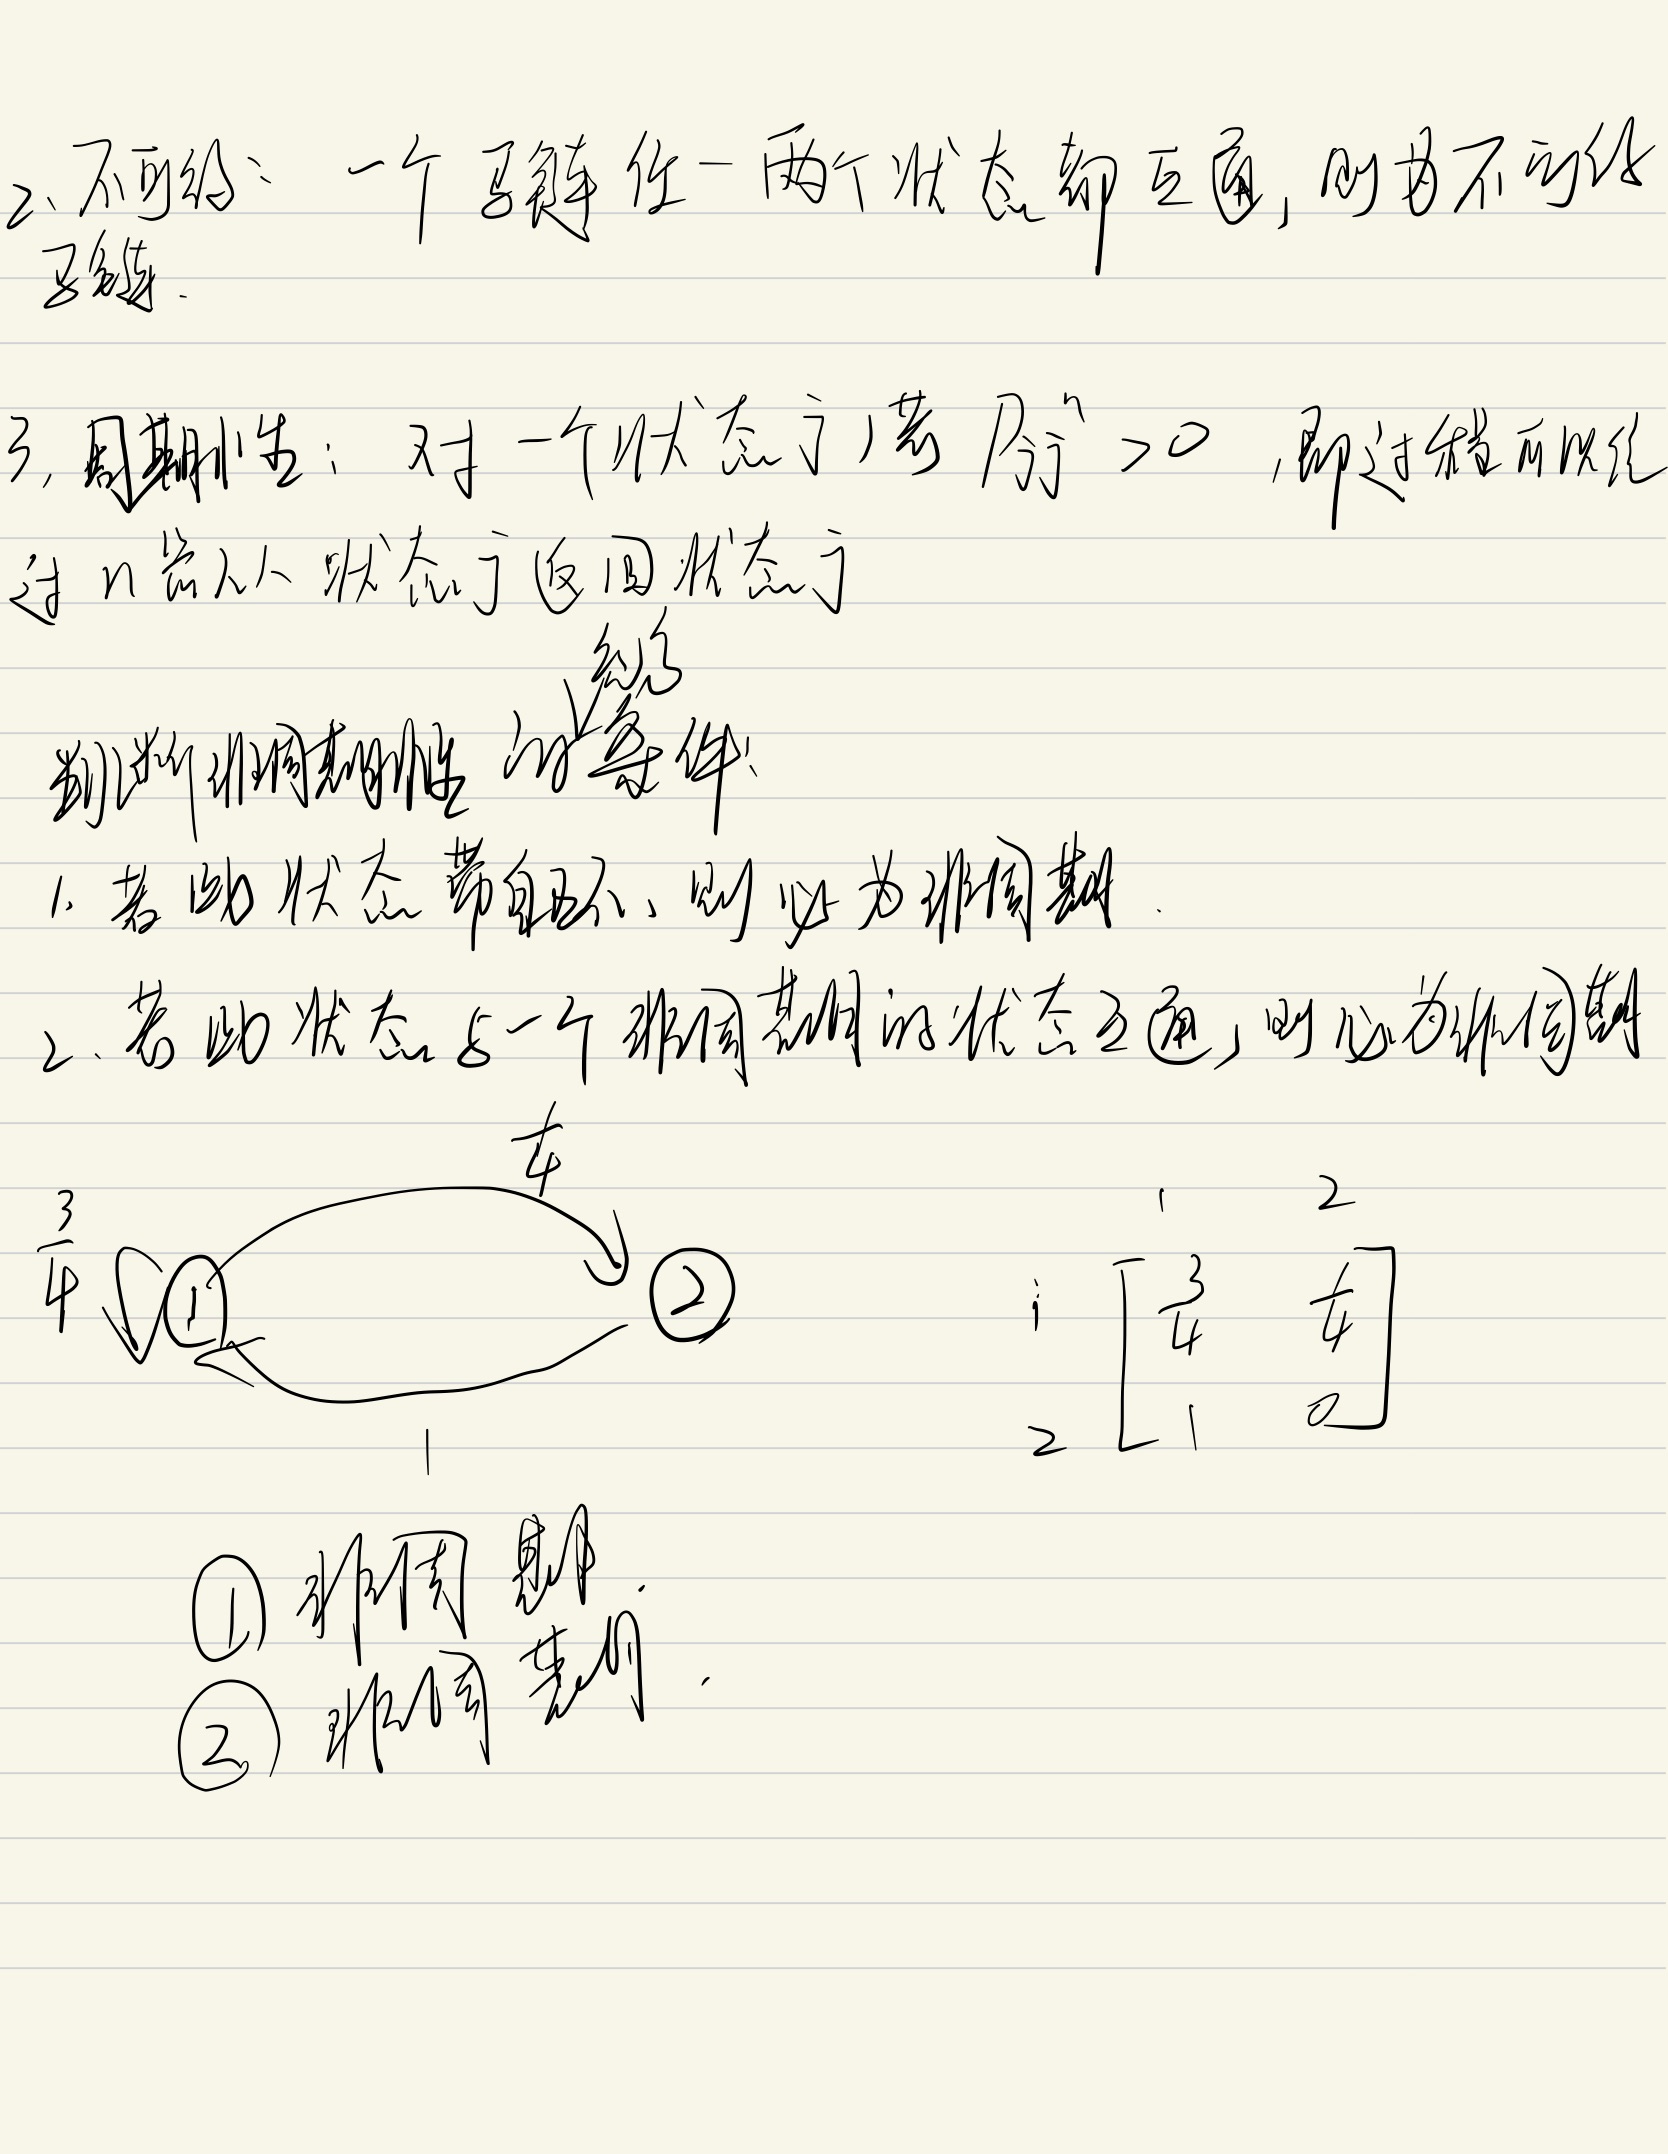 2、不可约：一个马链任一两个状态都互通，则为不可约
马链.
3、周期性：对一个状态j，若Pjjⁿ>0，即过程可以经
过n步从状态j返回状态j
判断非周期性的条件：
1、若此状态带自环、则必为非周期.
2、若此状态与一个非周期的状态互通，则必为非周期
1/4
3/4 ① ②
1
1 2
1 3/4 1/4
2 1 0
① 非周期.
② 非周期.